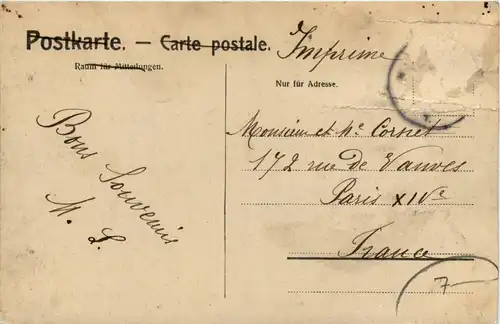 Postkarte. — Carte postale.
Imprimé
Raum für Mitteilungen.
Nur für Adresse.
Bons Souvenirs
M. L.
Monsieur et Me Cornet
172 rue de Vanves
Paris XIVe
France
7